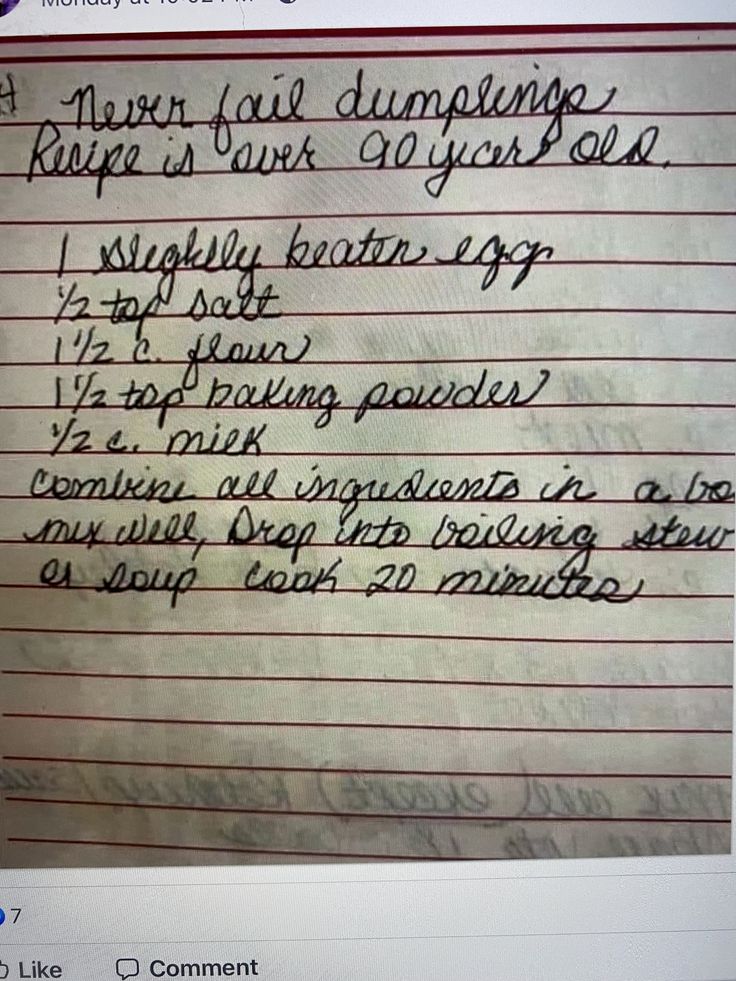 Never fail dumplings
Recipe is over 90 years old.
1 slightly beaten egg
1/2 tsp salt
1 1/2 c. flour
1 1/2 tsp baking powder
1/2 c. milk
Combine all ingredients in a bo
mix well, Drop into boiling stew
or soup cook 20 minutes
7
Like Comment